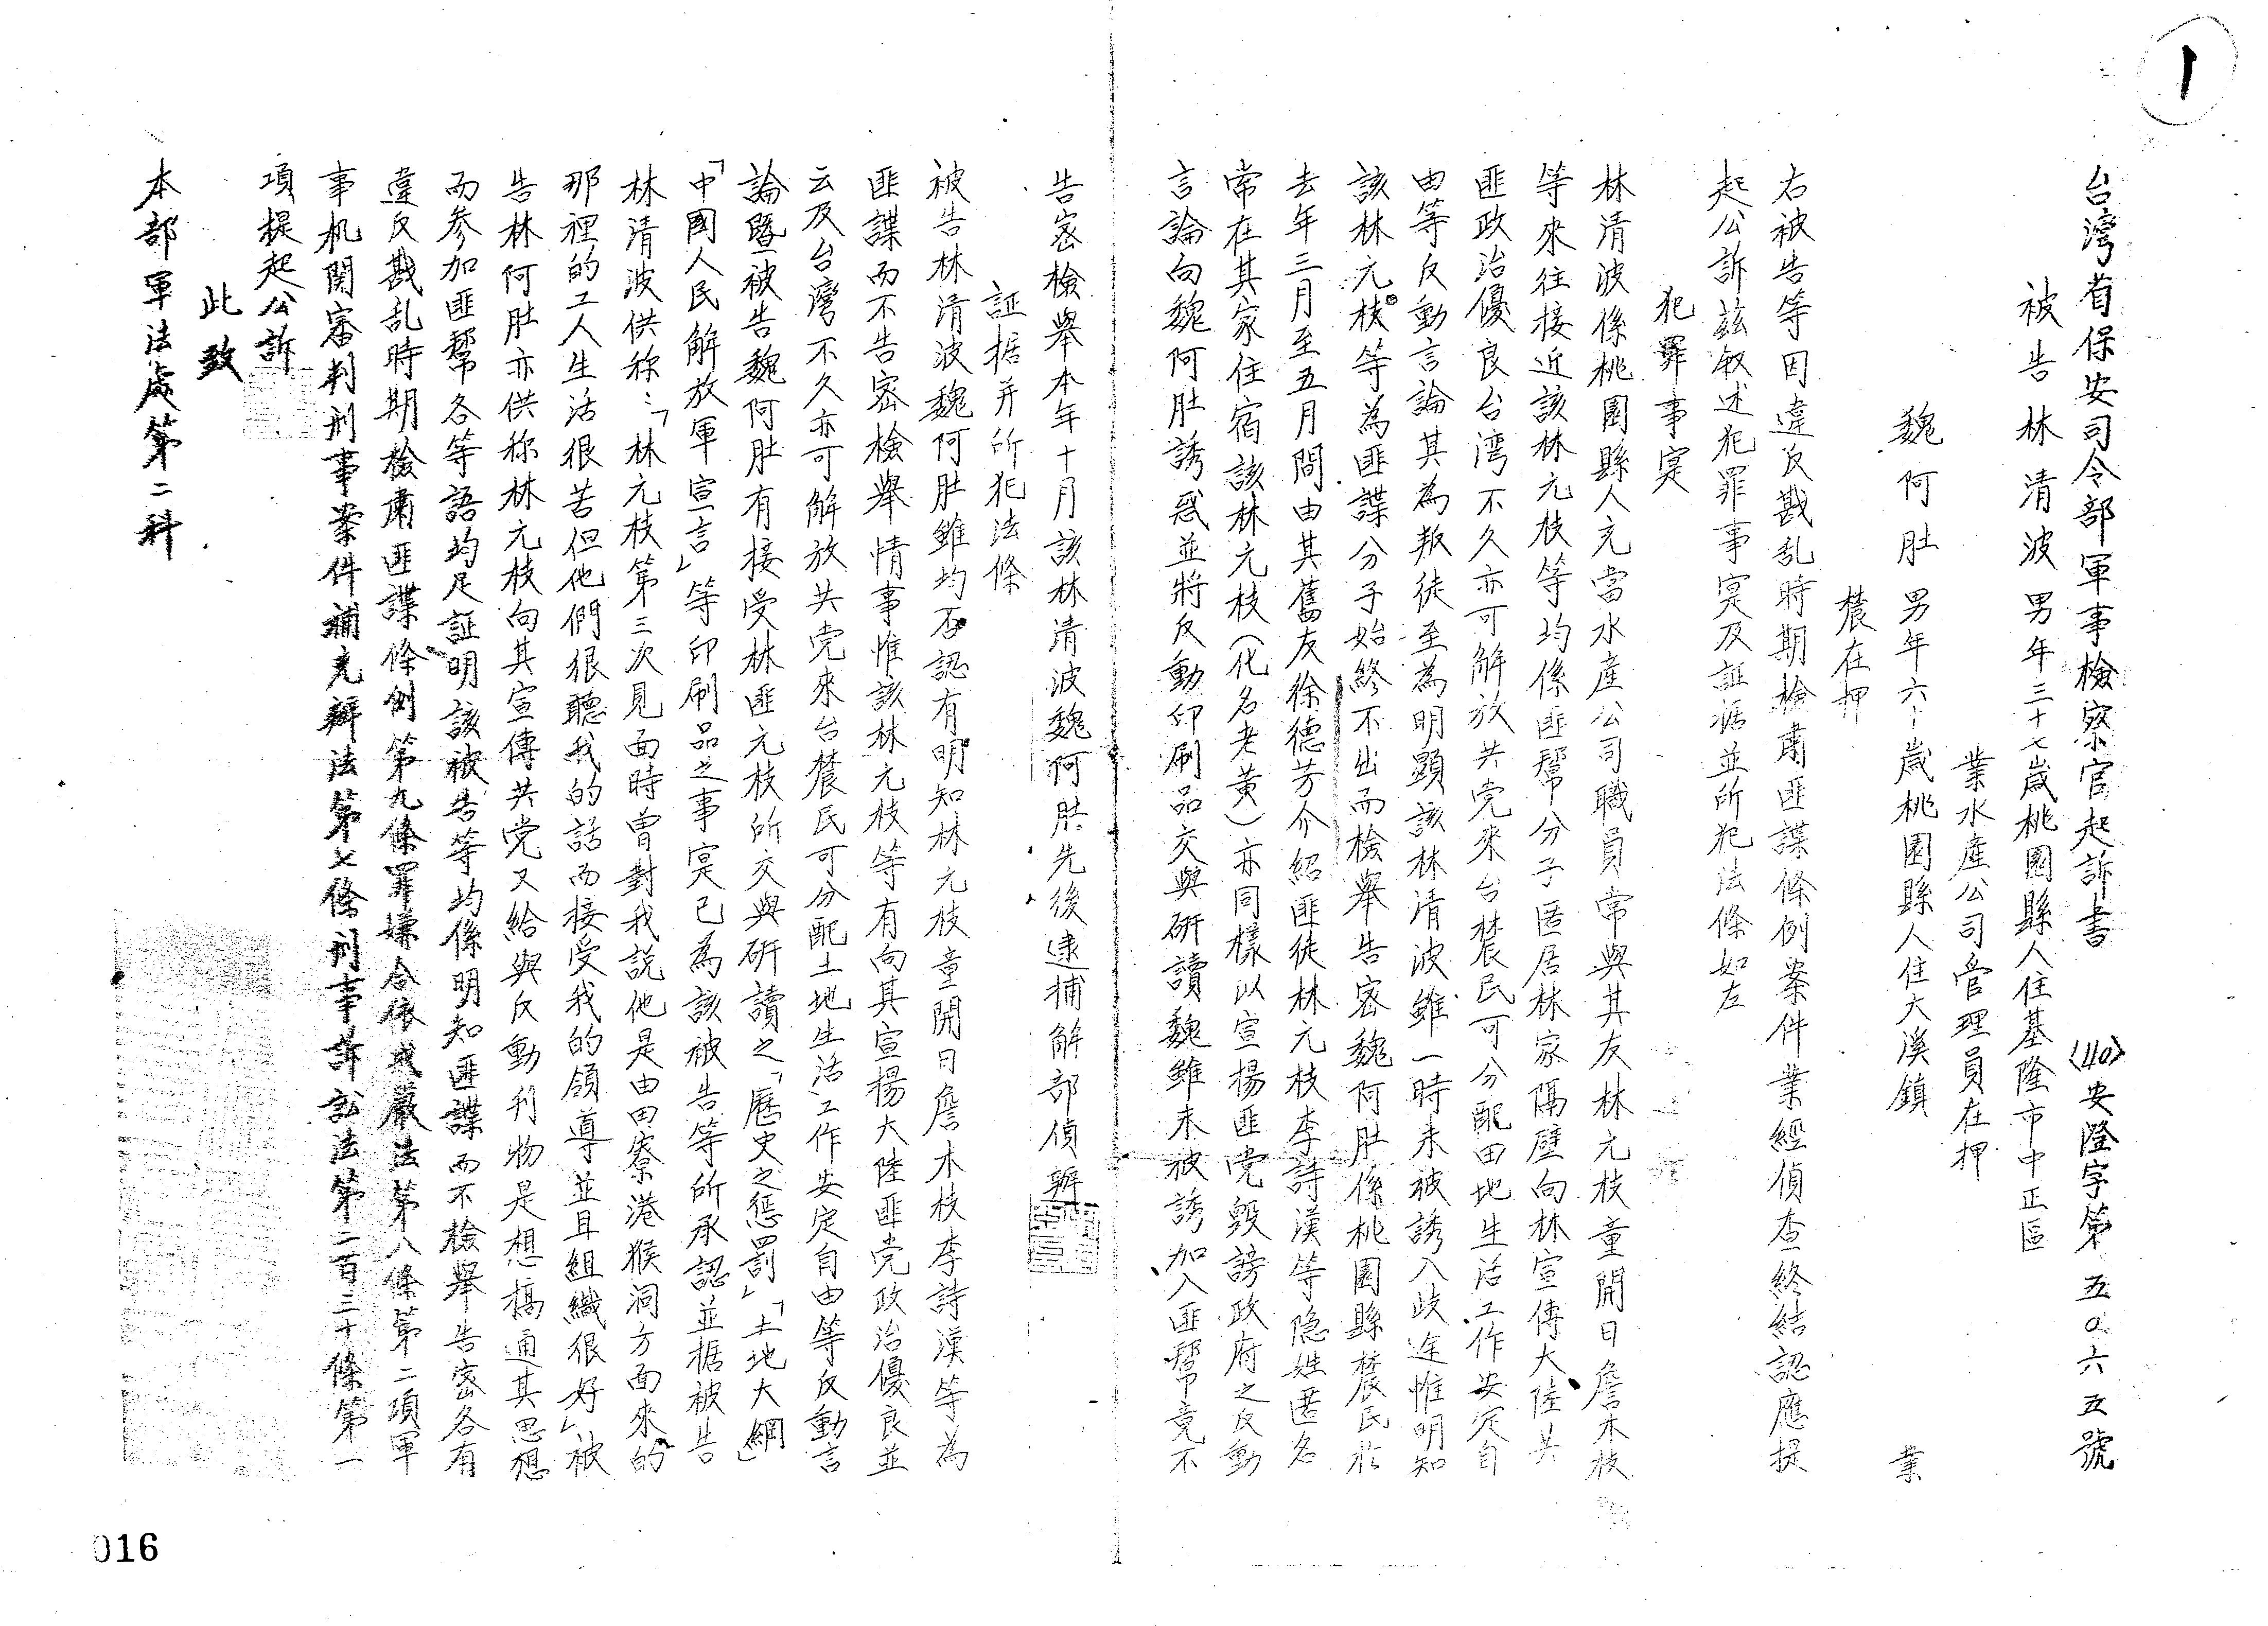 1
台灣省保安司令部軍事檢察官起訴書 (40)安澄字第五〇六五號
被告 林清波 男年三十七歲桃園縣人住基隆市中正區
業水產公司管理員在押
魏阿肚 男年六一歲桃園縣人住大溪鎮 業
農在押
右被告等因違反戡乱時期檢肅匪諜條例案件業經偵查終結認應提
起公訴茲敘述犯罪事寔及証据並所犯法條如左
犯罪事寔
林清波係桃園縣人充當水產公司職員常與其友林元枝童開日詹木枝
等來往接近該林元枝等均係匪幫分子匿居林家隔壁向林宣傳大陸共
匪政治優良台湾不久亦可解放共党來台農民可分配田地生活工作安定自
由等反動言論其為叛徒至為明顯該林清波雖一時未被誘入歧途惟明知
該林元枝等為匪諜分子始終不出而檢舉告密魏阿肚係桃園縣農民於
去年三月至五月間由其舊友徐德芳介紹匪徒林元枝李詩漢等隐姓匿名
常在其家住宿該林元枝(化名老黃)亦同樣以宣揚匪党毀謗政府之反動
言論向魏阿肚誘惑並將反動印刷品交與研讀魏雖未被誘加入匪幫竟不
告密檢舉本年十月該林清波魏阿肚先後逮捕解部偵辦
証据并所犯法條
被告林清波魏阿肚雖均否認有明知林元枝童開日詹木枝李詩漢等為
匪諜而不告密檢舉情事惟該林元枝等有向其宣揚大陸匪党政治優良並
云及台灣不久亦可解放共党來台農民可分配土地生活工作安定自由等反動言
論暨被告魏阿肚有接受林匪元枝所交與研讀之「歷史之惩罰」「土地大綱」
「中國人民解放軍宣言」等印刷品之事寔已為該被告等所承認並据被告
林清波供称:「林元枝第三次見面時曾對我說他是由田寮港猴洞方面來的
那裡的工人生活很苦但他們很聽我的話而接受我的領導並且組織很好」被
告林阿肚亦供称林元枝向其宣傳共党又給與反動刊物是想搞通其思想
而參加匪幫各等語均足証明該被告等均係明知匪諜而不檢舉告密各有
違反戡乱時期檢肅匪諜條例第九條罪嫌合依戒嚴法第八條第二項軍
事机関審判刑事案件補充辦法第七條刑事訴訟法第二百三十條第一
項提起公訴
此致
本部軍法處第二科
016